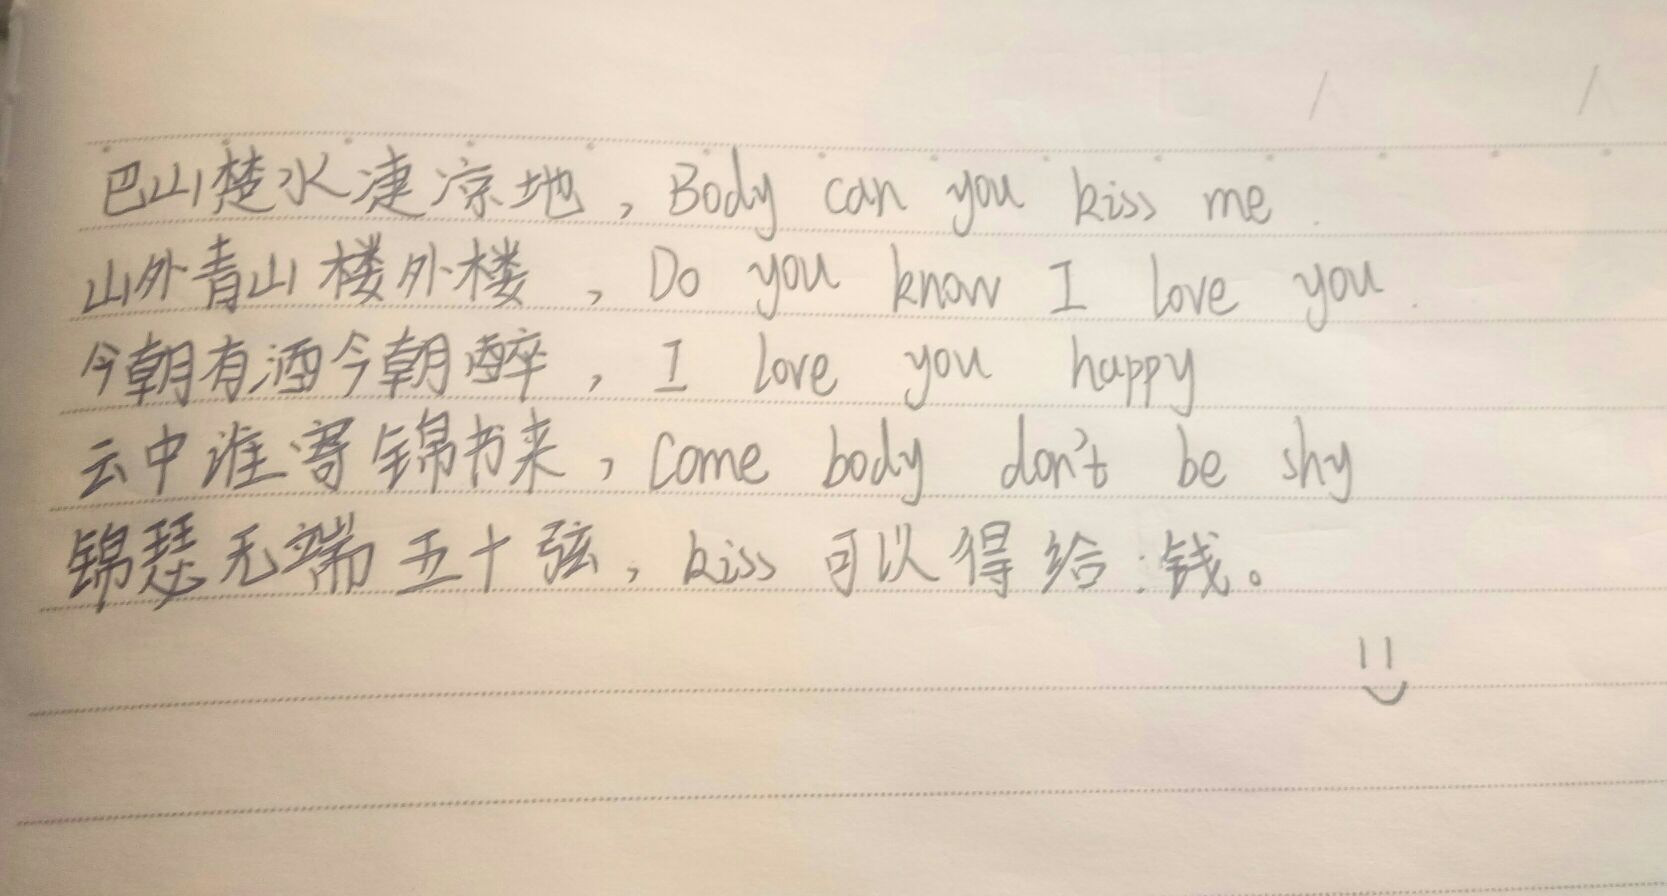 巴山楚水凄凉地，Body can you kiss me.
山外青山楼外楼，Do you know I love you.
今朝有酒今朝醉，I love you happy
云中谁寄锦书来，Come body don't be shy
锦瑟无端五十弦，kiss可以得给:钱。